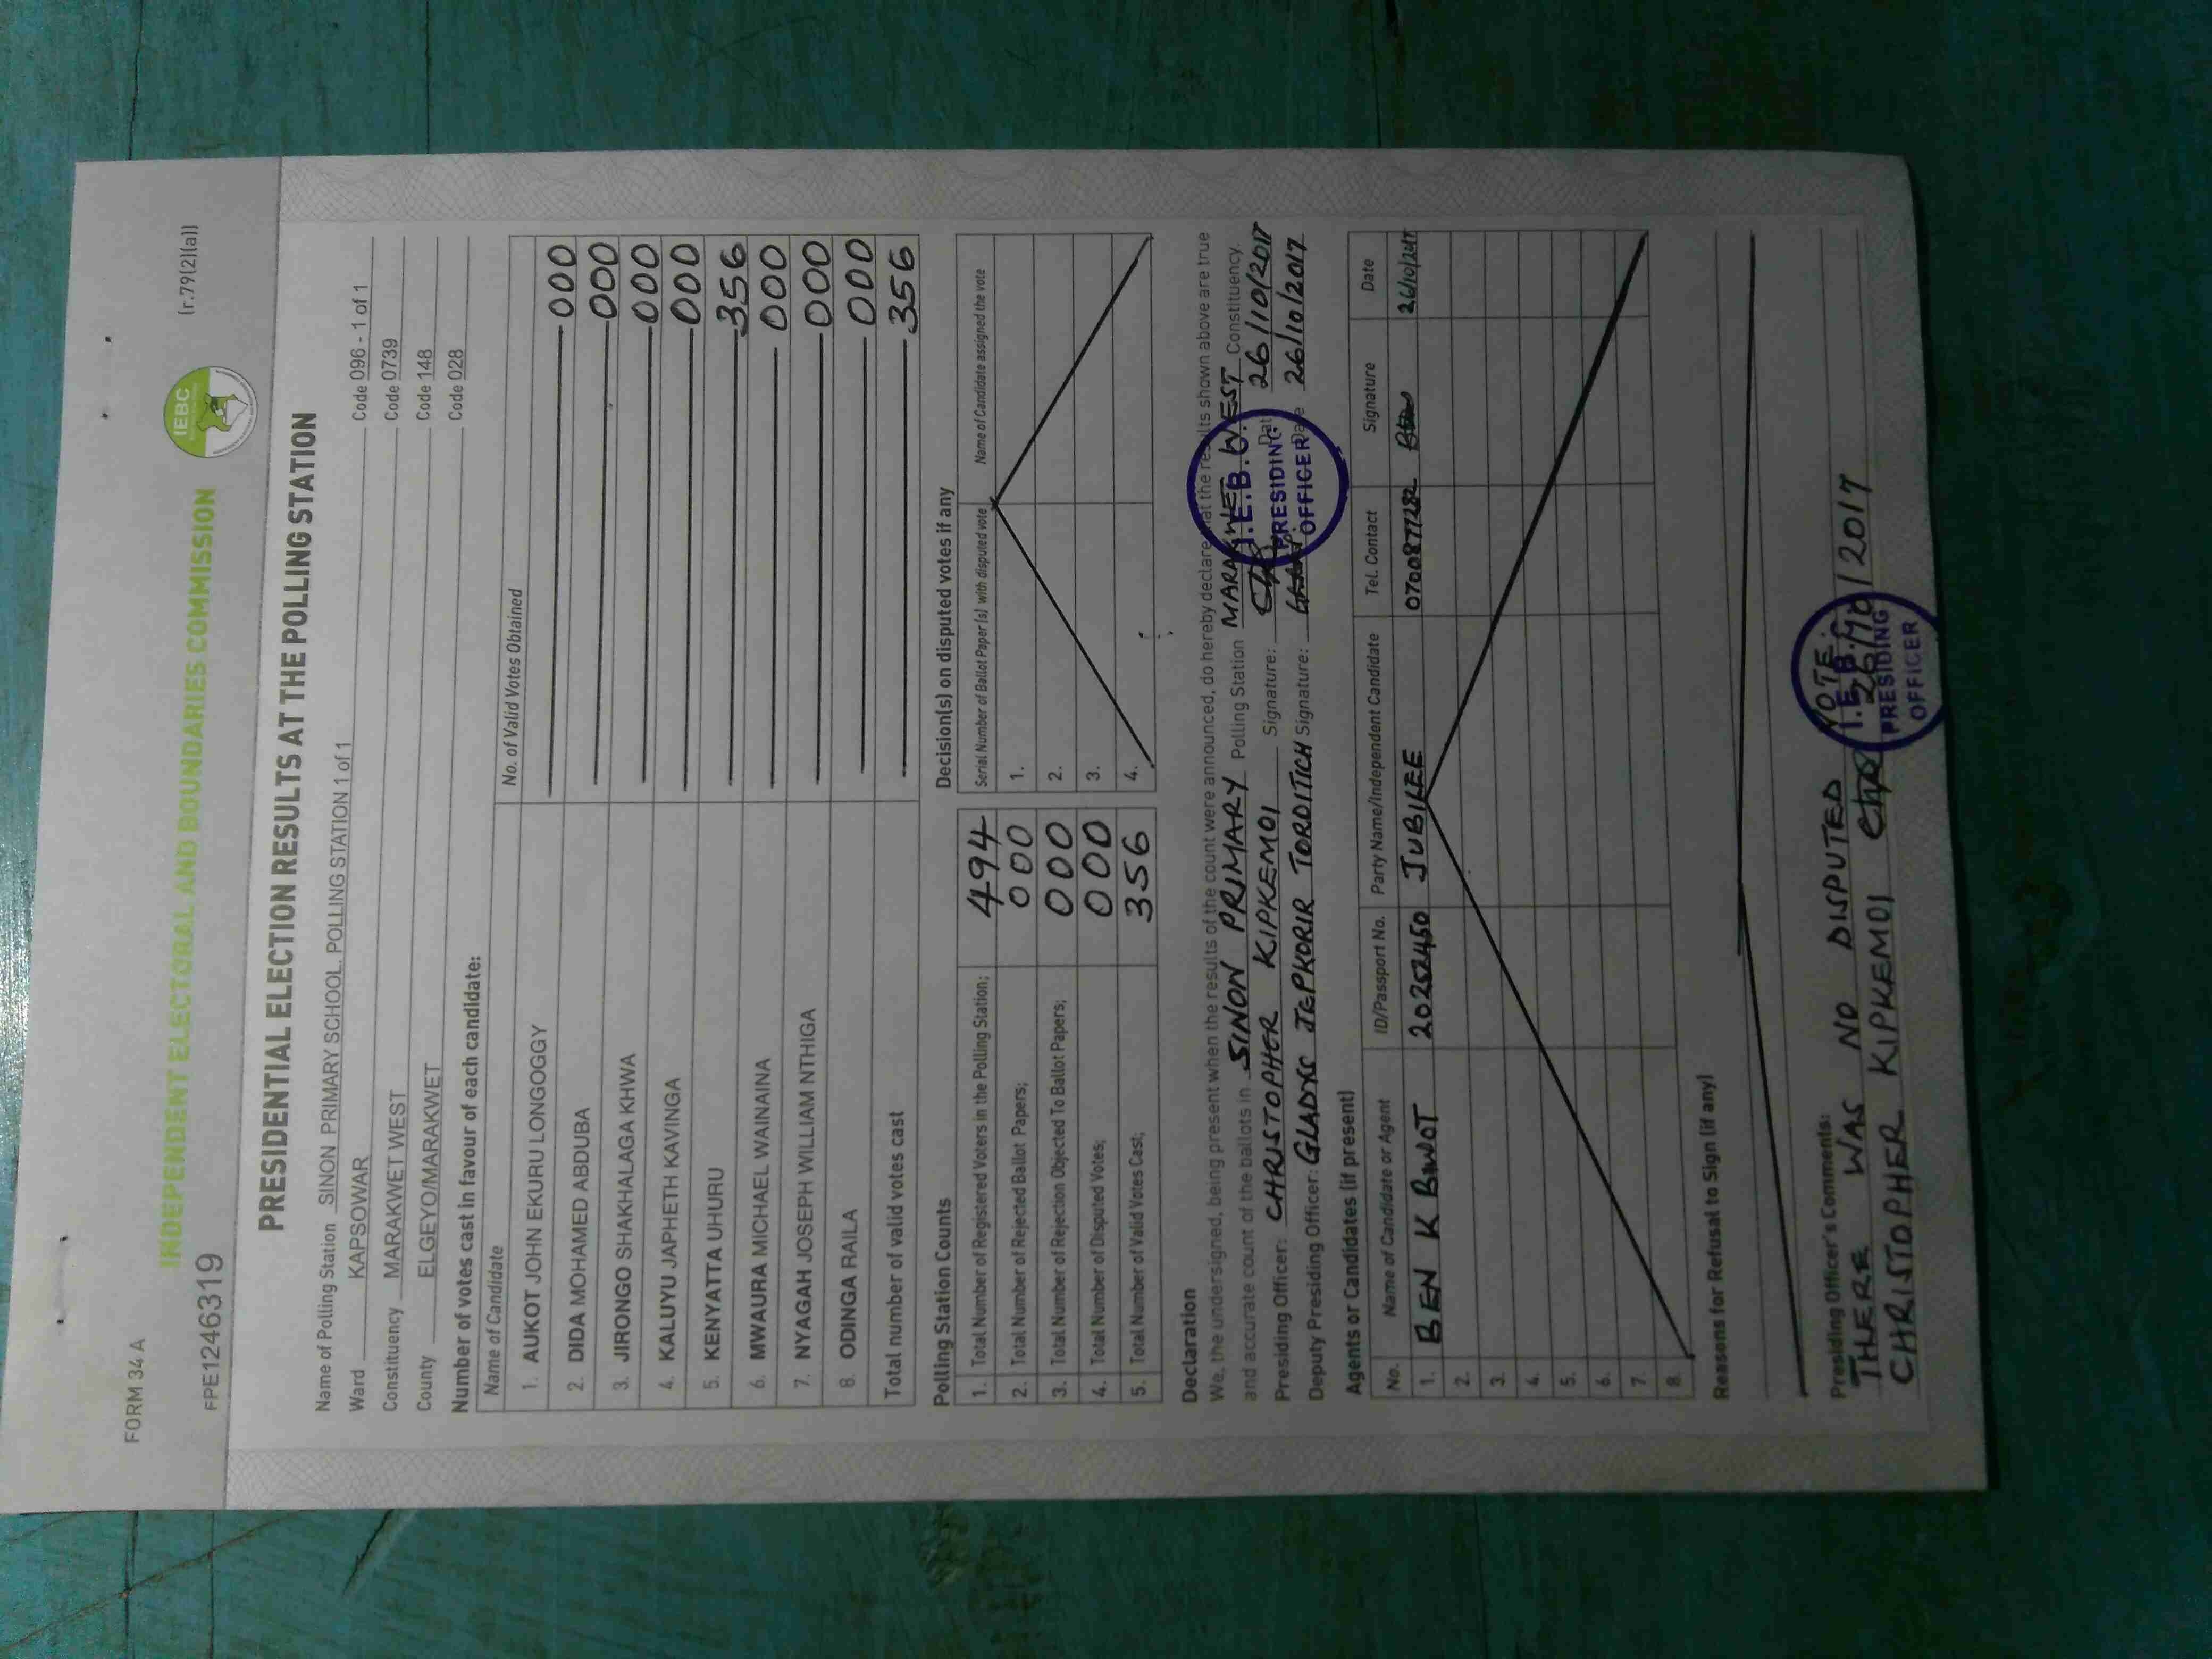 FORM 34 A
(r.79(2)(a))
FPE1246319
INDEPENDENT ELECTORAL AND BOUNDARIES COMMISSION
IEBC
PRESIDENTIAL ELECTION RESULTS AT THE POLLING STATION
Name of Polling Station SINON PRIMARY SCHOOL. POLLING STATION 1 of 1 Code 096 - 1 of 1
Ward KAPSOWAR Code 0739
Constituency MARAKWET WEST Code 148
County ELGEYO/MARAKWET Code 028
Number of votes cast in favour of each candidate:
Name of Candidate No. of Valid Votes Obtained
1. AUKOT JOHN EKURU LONGOGGY 000
2. DIDA MOHAMED ABDUBA 000
3. JIRONGO SHAKHALAGA KHWA 000
4. KALUYU JAPHETH KAVINGA 000
5. KENYATTA UHURU 356
6. MWAURA MICHAEL WAINAINA 000
7. NYAGAH JOSEPH WILLIAM NTHIGA 000
8. ODINGA RAILA 000
Total number of valid votes cast 356
Polling Station Counts
1. Total Number of Registered Voters in the Polling Station; 494
2. Total Number of Rejected Ballot Papers; 000
3. Total Number of Rejection Objected To Ballot Papers; 000
4. Total Number of Disputed Votes; 000
5. Total Number of Valid Votes Cast; 356
Decision(s) on disputed votes if any
Serial Number of Ballot Paper (s) with disputed vote Name of Candidate assigned the vote
1.
2.
3.
4.
Declaration
We, the undersigned, being present when the results of the count were announced, do hereby declare that the results shown above are true
and accurate count of the ballots in SINON PRIMARY Polling Station MARAKWET WEST Constituency.
Presiding Officer: CHRISTOPHER KIPKEMOI Signature: Date 26/10/2017
Deputy Presiding Officer: GLADYS JEPKORIR TORDITICH Signature: Date 26/10/2017
I.E.B.C
PRESIDING
OFFICER
Agents or Candidates (if present)
No. Name of Candidate or Agent ID/Passport No. Party Name/Independent Candidate Tel. Contact Signature Date
1. BEN K BIWOT 20252450 JUBILEE 0700877282 26/10/2017
2.
3.
4.
5.
6.
7.
8.
Reasons for Refusal to Sign (if any)
Presiding Officer's Comments:
THERE WAS NO DISPUTED VOTE.
CHRISTOPHER KIPKEMOI 26/10/2017
I.E.B.C
PRESIDING
OFFICER